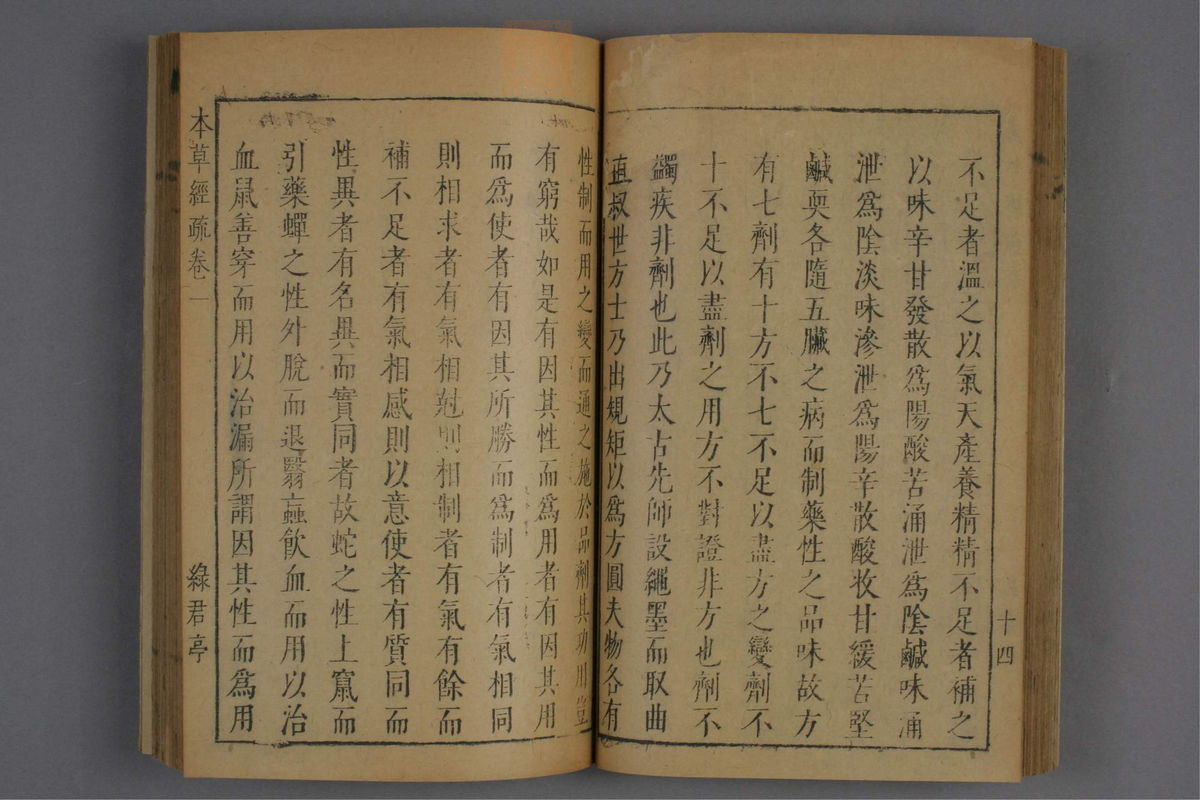 十四
不足者溫之以氣天產養精精不足者補之
以味辛甘發散爲陽酸苦涌泄爲陰鹹味涌
泄爲陰淡味滲泄爲陽辛散酸收甘緩苦堅
鹹耎各隨五臟之病而制藥性之品味故方
有七劑有十方不七不足以盡方之變劑不
十不足以盡劑之用方不對證非方也劑不
蠲疾非劑也此乃太古先師設繩墨而取曲
直叔世方士乃出規矩以爲方圓夫物各有
性制而用之變而通之施於品劑其功用豈
有窮哉如是有因其性而爲用者有因其用
而爲使者有因其所勝而爲制者有氣相同
則相求者有氣相尅則相制者有氣有餘而
補不足者有氣相感則以意使者有質同而
性異者有名異而實同者故蛇之性上竄而
引藥蟬之性外脫而退翳蝱飮血而用以治
血鼠善穿而用以治漏所謂因其性而爲用
本草經疏卷一
綠君亭